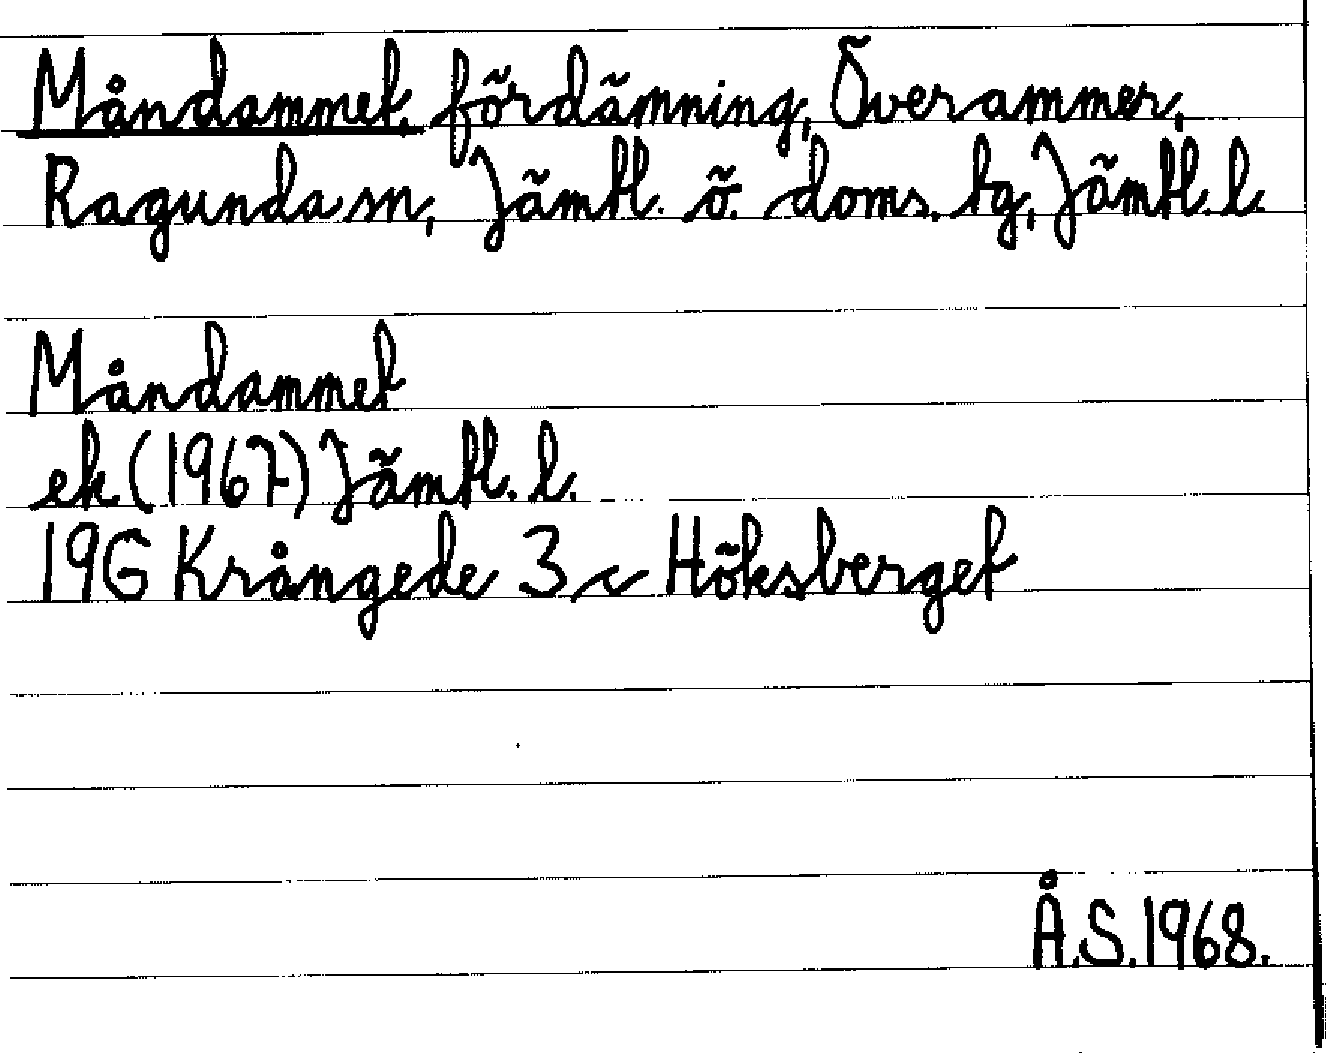 Måndammet, fördämning, Överammer,
Ragunda sn, Jämtl. ö. doms. tg, Jämtl. l.
Måndammet
ek (1967) Jämtl. l.
19G Krångede 3 c Höksberget
Å.S. 1968.